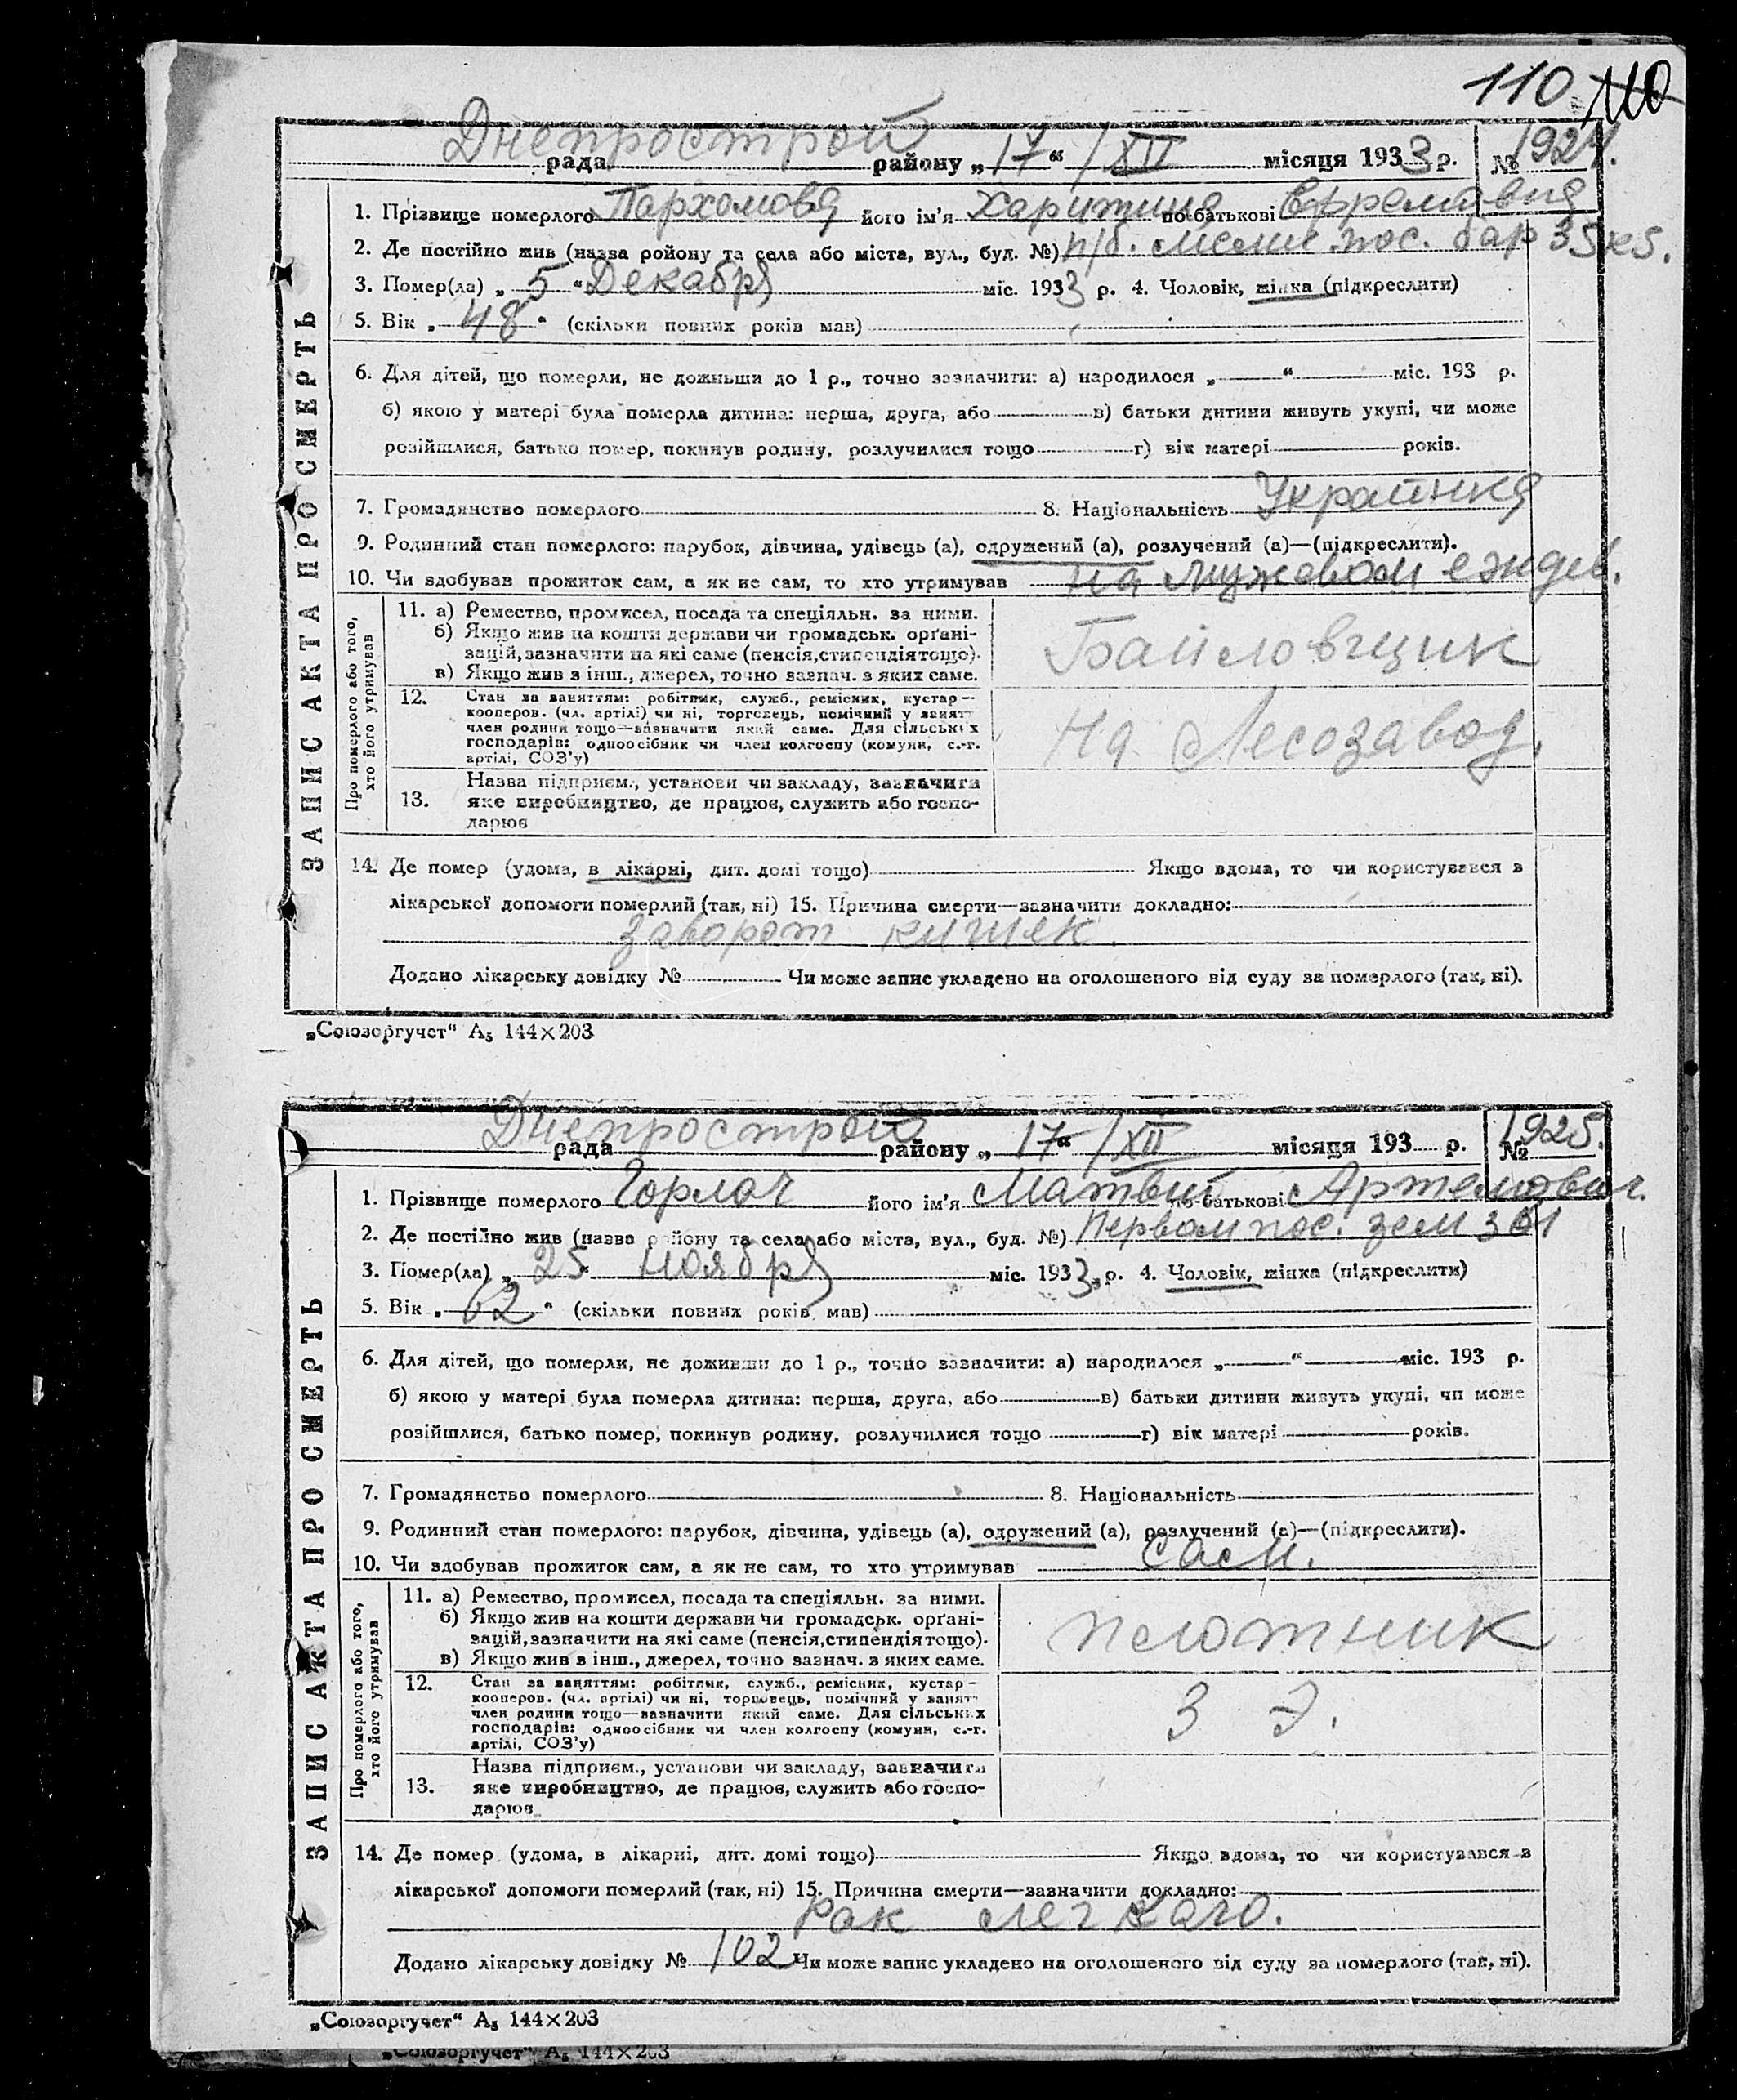 110 110
Днепрострой
рада району „17“ /XII місяця 1933 р. № 1924.
1. Прізвище померлого Пархомова його ім'я Харитина по батькові Ефремовна
2. Де постійно жив (назва ройону та села або міста, вул., буд. №) п/б. пос. бар 35 к 5.
3. Помер(ла) „5“ Декабря міс. 1933 р. 4. Чоловік, жінка (підкреслити)
5. Вік „48“ (скільки повних років мав)
6. Для дітей, що померли, не доживши до 1 р., точно зазначити: а) народилося „ “ міс. 193 р.
б) якою у матері була померла дитина: перша, друга, або в) батьки дитини живуть укупі, чи може
розійшлися, батько помер, покинув родину, розлучилися тощо г) вік матері років.
7. Громадянство померлого 8. Національність Украинка
9. Родинний стан померлого: парубок, дівчина, удівець (а), одружений (а), розлучений (а)—(підкреслити).
10. Чи здобував прожиток сам, а як не сам, то хто утримував на мужевом иждев.
ЗАПИС АКТА ПРО СМЕРТЬ
Про померлого або того,
хто його утримував
11. а) Ремество, промисел, посада та спеціяльн. за ними.
б) Якщо жив на кошти держави чи громадськ. орґані-
зацій, зазначити на які саме (пенсія, стипендія тощо).
в) Якщо жив з інш., джерел, точно зазнач. з яких саме.
12. Стан за заняттям: робітник, служб., ремісник, кустар—
кооперов. (чл. артілі) чи ні, торговець, помічний у занятт
член родини тощо—зазначити який саме. Для сільських
господарів: одноосібник чи член колгоспу (комуни, с.-г.
артілі, СОЗ'у)
На Лесозавод.
Назва підприєм., установи чи закладу, зазначити
13. яке виробництво, де працює, служить або госпо-
дарює
14. Де помер (удома, в лікарні, дит. домі тощо) Якщо вдома, то чи користувався в
лікарської допомоги померлий (так, ні) 15. Причина смерти—зазначити докладно:
заворот кишек.
Додано лікарську довідку № Чи може запис укладено на оголошеного від суду за померлого (так, ні).
„Союзоргучет“ А₅ 144×203
Днепрострой
рада району „17“ /XII місяця 193 р. № 1925.
1. Прізвище померлого Горлач його ім'я Матвий по батькові Артемович.
2. Де постійно жив (назва району та села або міста, вул., буд. №) Первом пос. зем 301
3. Помер(ла) „25“ ноября міс. 1933 р. 4. Чоловік, жінка (підкреслити)
5. Вік „62“ (скільки повних років мав)
6. Для дітей, що померли, не доживши до 1 р., точно зазначити: а) народилося „ “ міс. 193 р.
б) якою у матері була померла дитина: перша, друга, або в) батьки дитини живуть укупі, чи може
розійшлися, батько помер, покинув родину, розлучилися тощо г) вік матері років.
7. Громадянство померлого 8. Національність
9. Родинний стан померлого: парубок, дівчина, удівець (а), одружений (а), розлучений (а)—(підкреслити).
10. Чи здобував прожиток сам, а як не сам, то хто утримував сам.
ЗАПИС АКТА ПРО СМЕРТЬ
Про померлого або того,
хто його утримував
11. а) Ремество, промисел, посада та спеціяльн. за ними.
б) Якщо жив на кошти держави чи громадськ. орґані-
зацій, зазначити на які саме (пенсія, стипендія тощо).
в) Якщо жив з інш., джерел, точно зазнач. з яких саме.
плотник
12. Стан за заняттям: робітник, служб., ремісник, кустар—
кооперов. (чл. артілі) чи ні, торговець, помічний у занятт
член родини тощо—зазначити який саме. Для сільських
господарів: одноосібник чи член колгоспу (комуни, с.-г.
артілі, СОЗ'у)
З Э.
Назва підприєм., установи чи закладу, зазначити
13. яке виробництво, де працює, служить або госпо-
дарює
14. Де помер (удома, в лікарні, дит. домі тощо) Якщо вдома, то чи користувався в
лікарської допомоги померлий (так, ні) 15. Причина смерти—зазначити докладно:
Рак легкаго.
Додано лікарську довідку № 102 Чи може запис укладено на оголошеного від суду за померлого (так, ні).
„Союзоргучет“ А₅ 144×203
„Союзоргучет“ А₅ 144×203